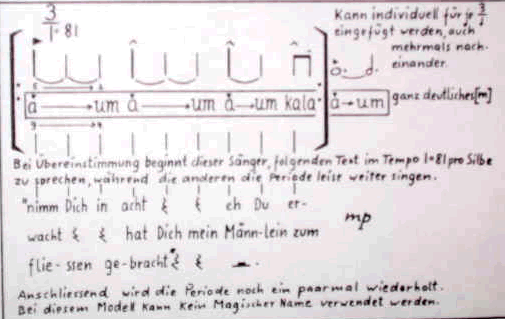 3
1 · 81
Kann individuell für je 3/♩
eingefügt werden, auch
mehrmals nach-
einander.
5 → 2
å → um å → um å → um kala
å → um
ganz deutliches [m]
9 → 4
Bei Übereinstimmung beginnt dieser Sänger, folgenden Text im Tempo 1=81 pro Silbe
zu sprechen, während die anderen die Periode leise weiter singen.
"nimm Dich in acht eh Du er-
mp
wacht hat Dich mein Männ-lein zum
flie-ssen ge-bracht
Anschliessend wird die Periode noch ein paarmal wiederholt.
Bei diesem Modell kann kein Magischer Name verwendet werden.